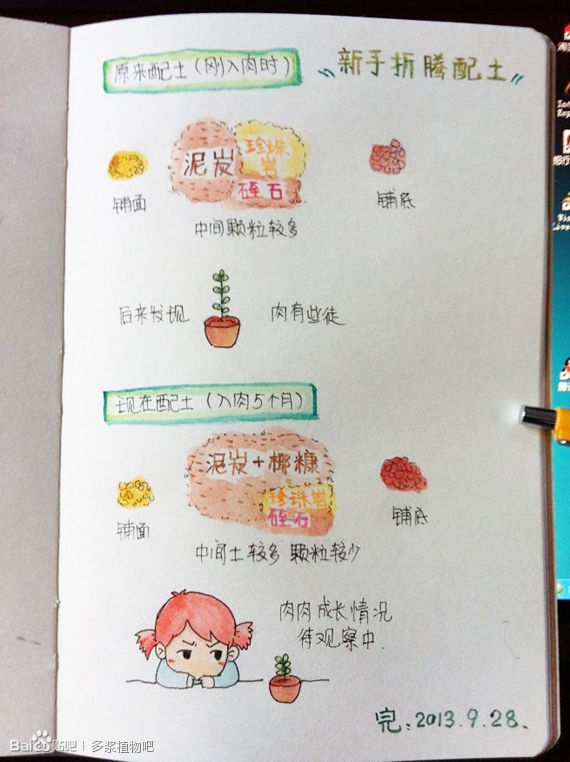 新手折腾配土
原来配土（刚入肉时）
泥炭
珍珠
岩
硅石
铺面
铺底
中间颗粒较多
后来发现
肉有些徒
现在配土（入肉5个月）
泥炭+椰糠
珍珠岩
硅石
铺面
铺底
中间土较多 颗粒较少
肉肉成长情况
待观察中.
完:2013.9.28.
Bai贴吧 | 多浆植物吧